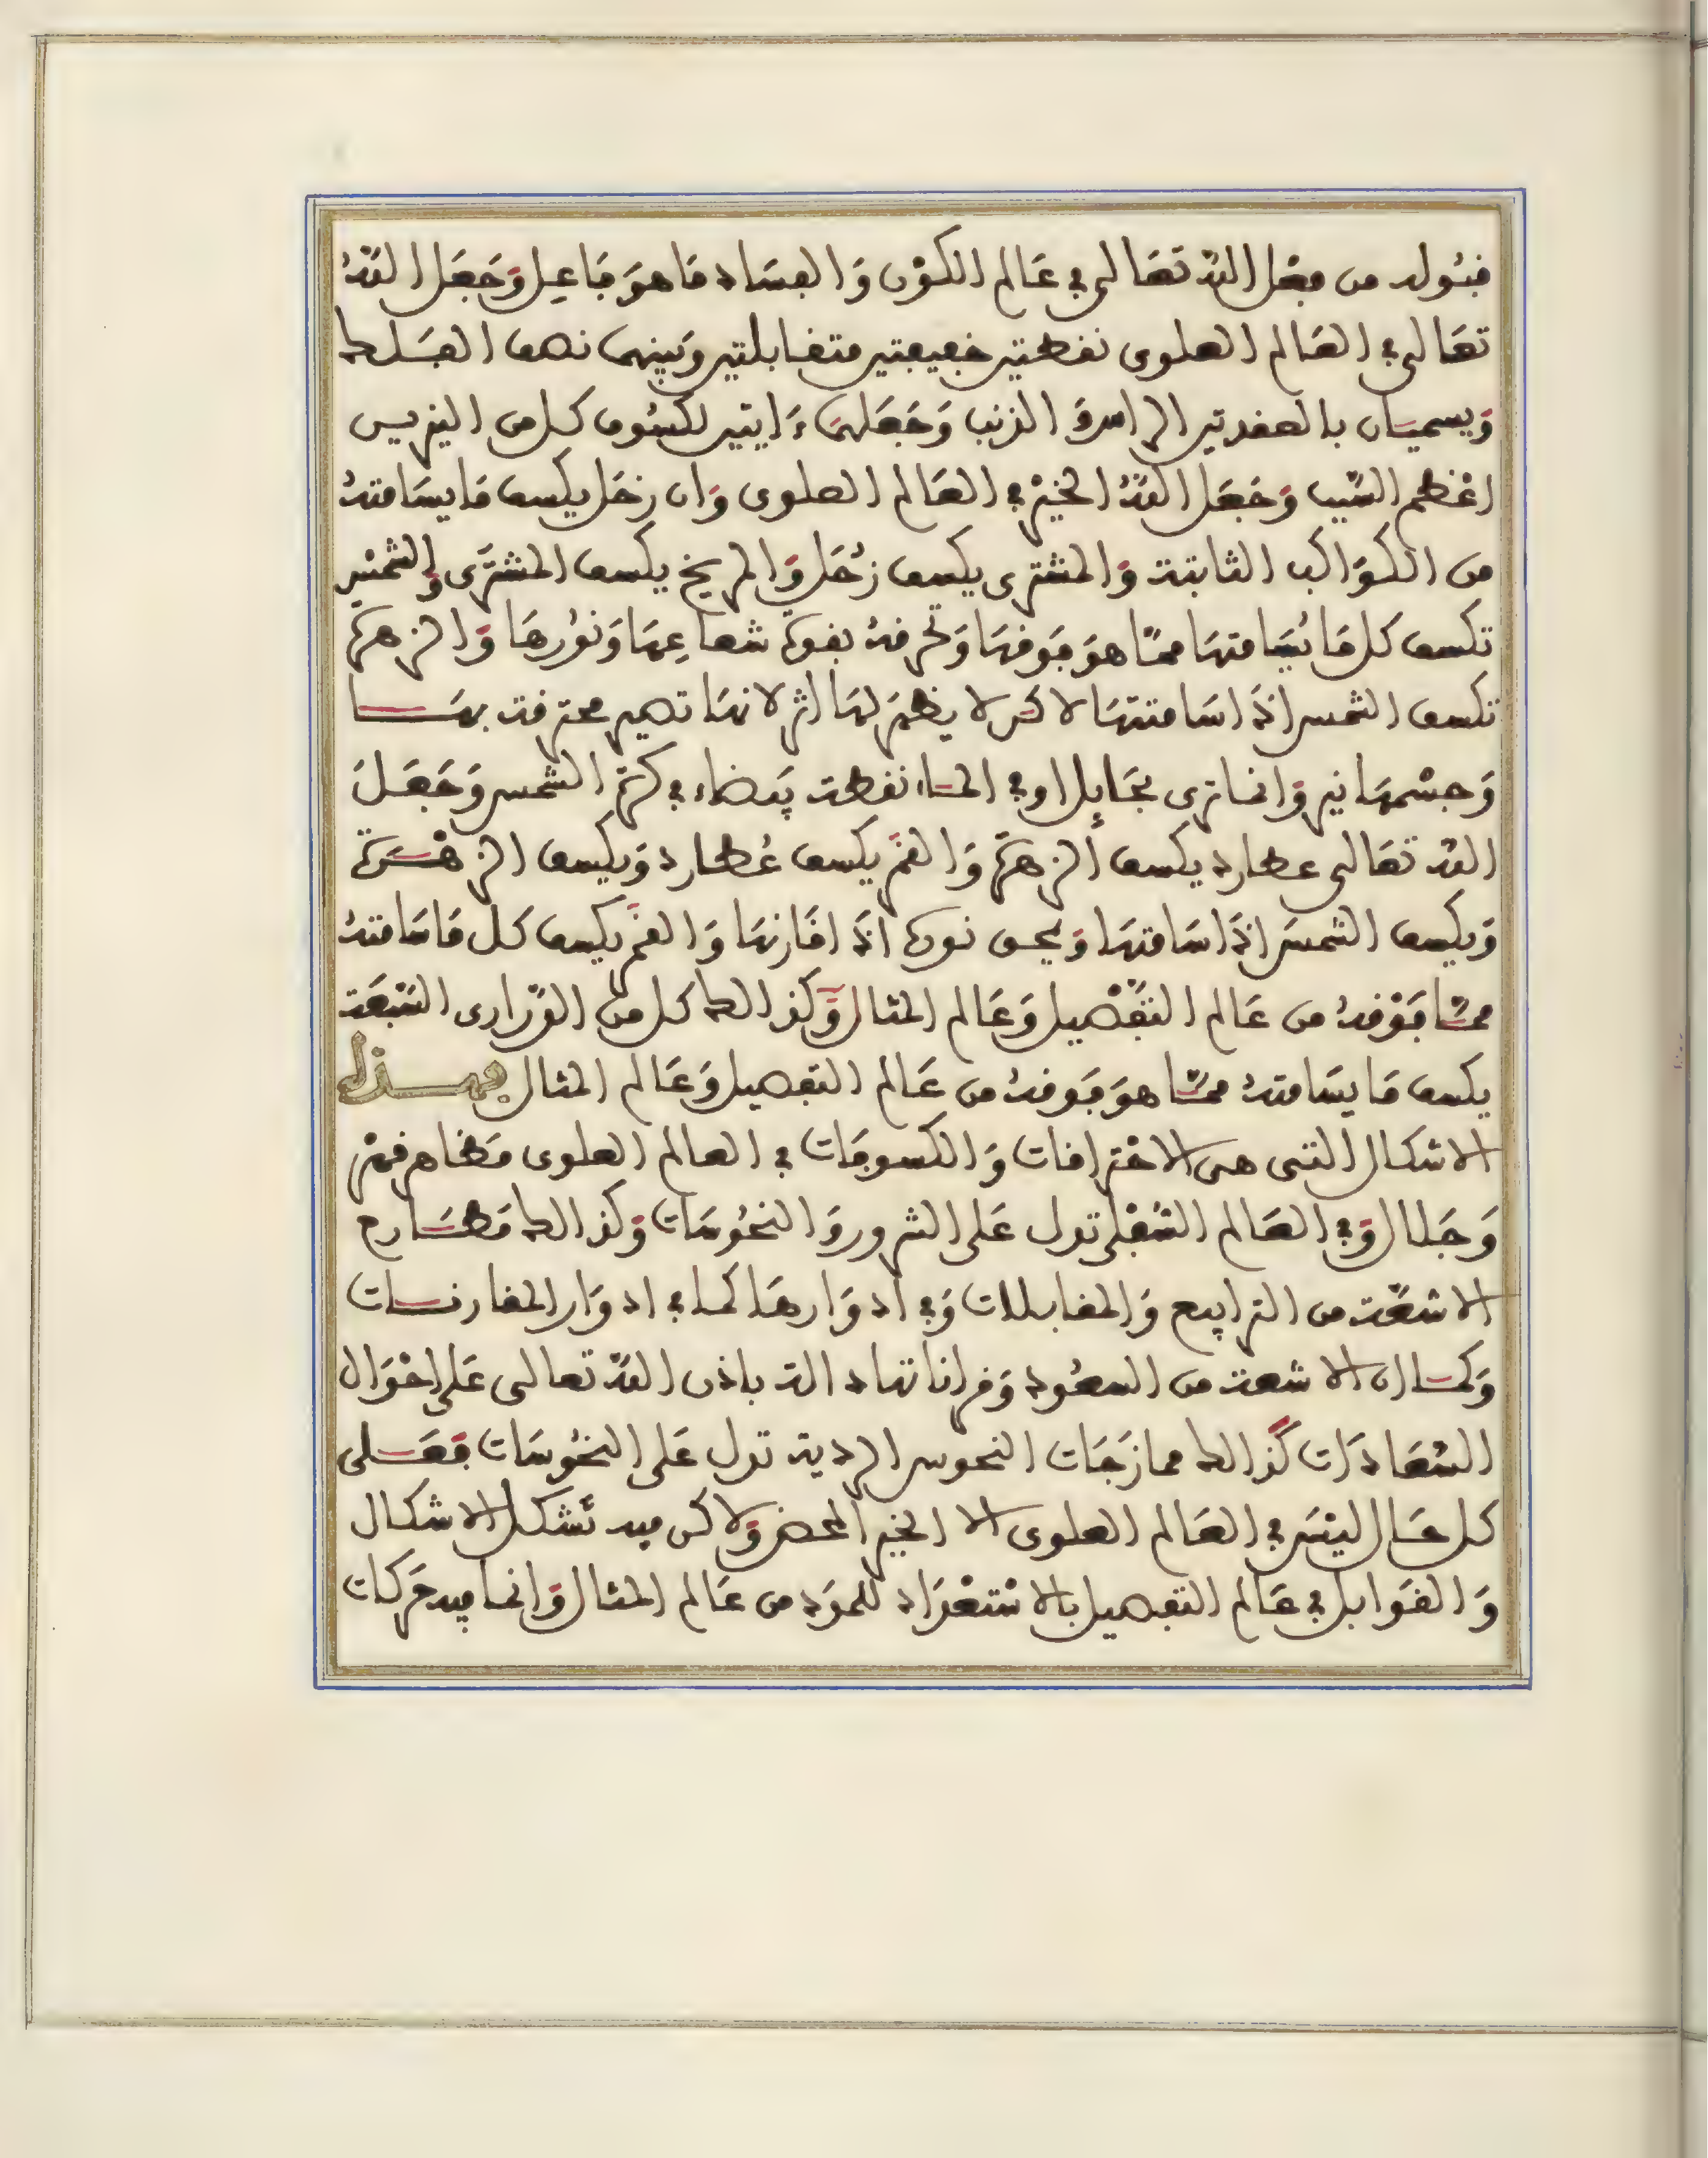 فيولد من فعل الله تعالى في عَالم الكوْن وَالفسَاد مَا هوَ فَاعِل وَجَعَل اللهُ
تعَالى في العَالم العلوى نقطتين خفيفتين متقابلتين وَبينهما نصف الفَلك
وَيسميَان بالعقدتين الراس وَالذنب وَجَعَلهمَا ءَايتين لكسُوف كل من النيرين
اعْظم السّبب وَجَعَل اللهُ الخيْر في العَالم العلوى وَان زحَل يكسف مَا يسَامتهُ
من الكوَاكب الثابتة وَالمشترى يكسف زُحَل وَالمريخ يكسف المشترَى وَالشمْس
تكسف كل مَا يُسَامتهَا ممّا هوَ فَوقهَا وَتحرقهُ بقوة شعاعِهَا وَنوُرهَا وَالزهرَة
تكسف الشمس اذَا سَامتتهَا لاكن لا يظهَر لهَا اثر لانهَا تصير محترقة بهَا
وَجسْمهَا نير وَانما ترى بجَابِل او في المَاء نقطة بَيضاء في كرَة الشمس وَجَعَلَ
الله تعَالى عطارد يكسف الزهرَة وَالقمَر يكسف عُطارد وَيكسف الزهْرَة
وَيكسف الشمسَ اذَا سَامتهَا وَيحسن نورهَا اذَا قَارنهَا وَالقمَر يكسف كل مَا سَامتهُ
ممّا فَوْقهُ من عَالم التفْصيل وَعَالم المثال وَكذالك كل من الدّرارى السّبْعَة
يكسف مَا يسَامتهُ ممّا هوَ فَوقهُ من عَالم التفصيل وَعَالم المثال فهذه
الاشكال التى هى الاحْترَاقات وَالكسوفَات في العالم العلوى مَظاهر قهْر
وَجَلال وَفي العَالم السّفْلى تدل عَلى الشرور وَالنحُوسَات وَكذالك مَطَارح
الاشعّة من الترابيع وَالمقابلات وَفي ادوَارهَا كما في ادوَار المقارنات
وَكمَا ان الاشعة من السعُود وَقراناتها دالة باذن الله تعالى عَلى احْوَال
السّعَادَات كذالك ممازَجَات النحوس الردية تدل عَلى النحُوسَات فعَلى
كل حَال ليْسَ في العَالم العلوى الا الخير المحض وَلاكن فيه تَشكل الاشكال
وَالقوَابل في عَالم التفصيل بالاسْتعْدَاد للموَاد من عَالم المثال وَانما فيه حَركات